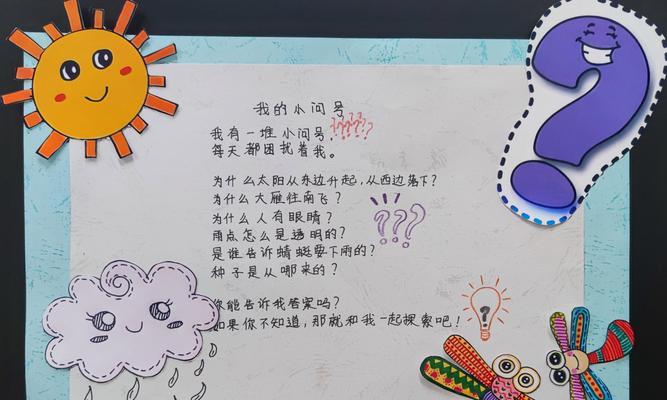 我的小问号
我有一堆小问号，?????
每天都困扰着我。
为什么太阳从东边升起，从西边落下？
为什么大雁往南飞？
为什么人有眼睛？
雨点怎么是透明的？
???
是谁告诉蜻蜓要下雨的？
种子是从哪来的？
你能告诉我答案吗？
如果你不知道，那就和我一起探索吧！